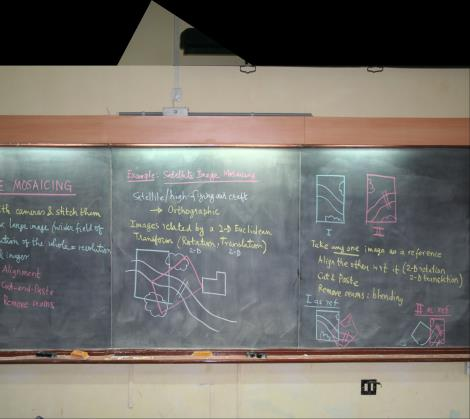 E MOSAICING
th cameras & stitch them
large image / wider field of
tion of the whole = resolution
images
Alignment
Cut-and-Paste
Remove seams
Example: Satellite Image Mosaicing
Satellite/high-flying aircraft
→ Orthographic
Images related by a 2-D Euclidean
Transform (Rotation, Translation)
2-D 2-D
I II
Take any one image as a reference
Align the other w.r.t it (2-D rotation
2-D translation)
Cut & Paste
Remove seams: blending
I as ref II as ref